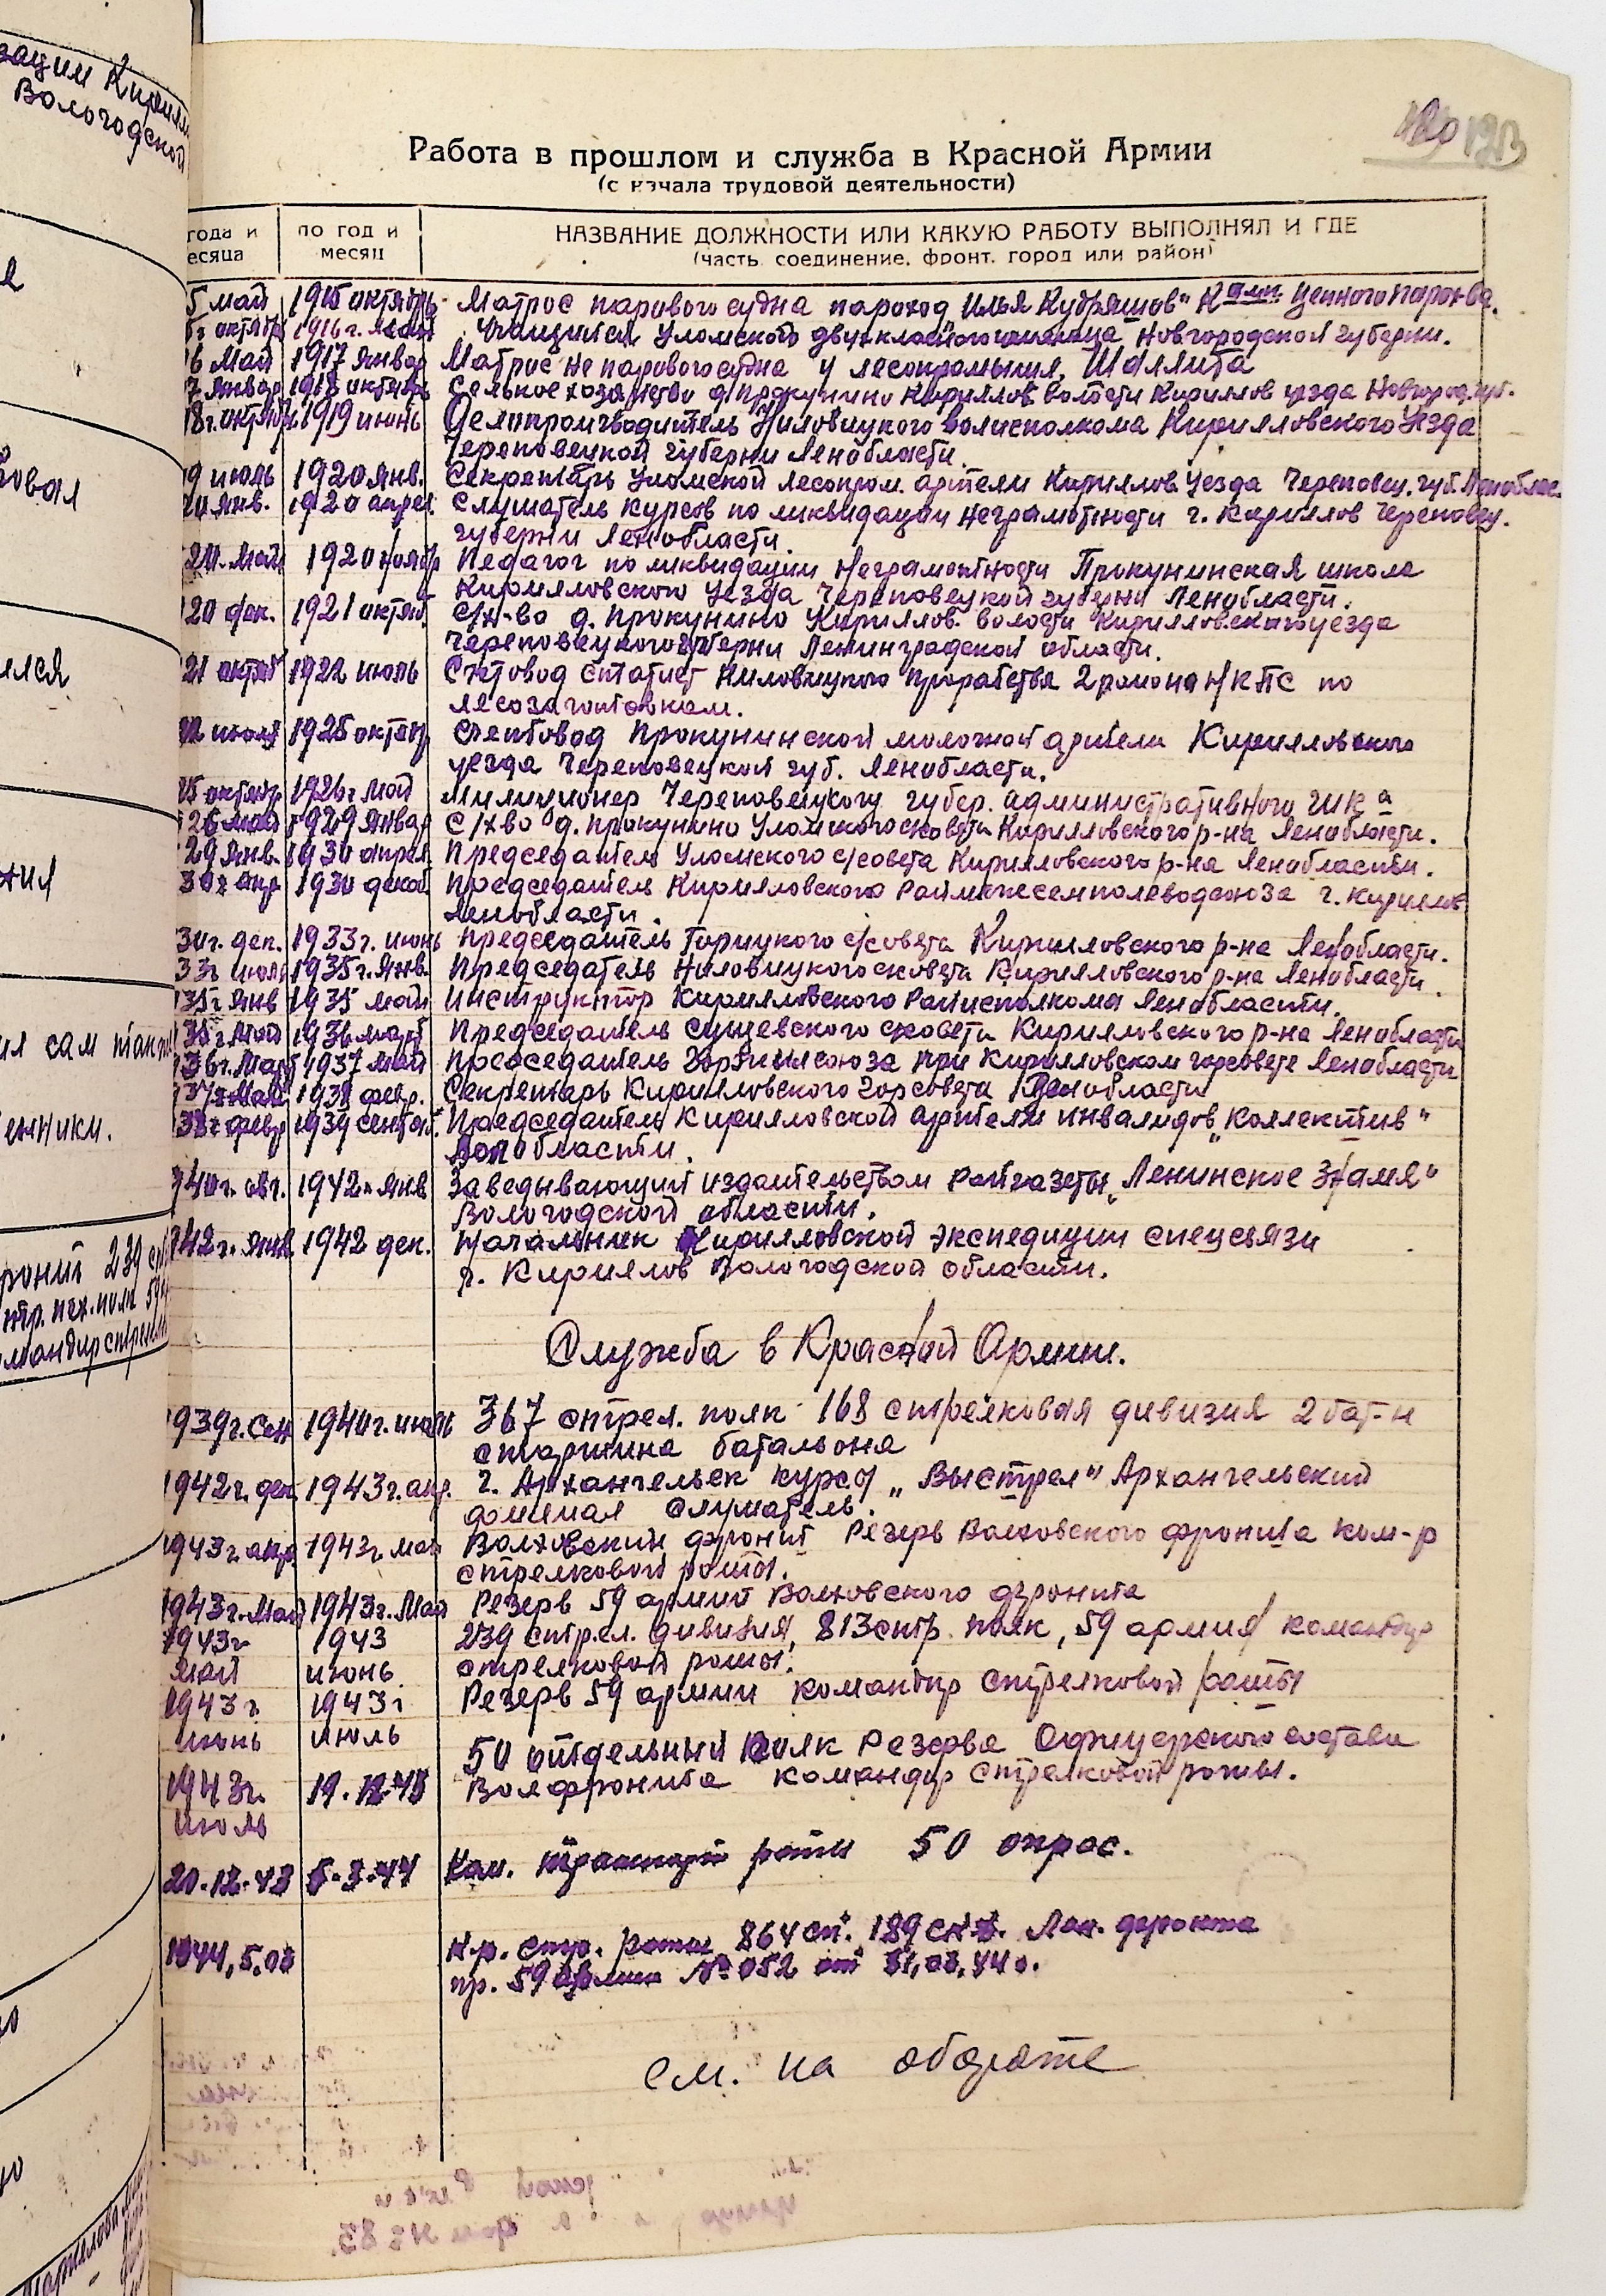 зации Кирилл
Вологодской
овал
ился
сам
енники.
роний 239
стр. пех. полк 59
командир стрелк
123
Работа в прошлом и служба в Красной Армии
(с начала трудовой деятельности)
года и
есяца
по год и
месяц
НАЗВАНИЕ ДОЛЖНОСТИ ИЛИ КАКУЮ РАБОТУ ВЫПОЛНЯЛ И ГДЕ
(часть, соединение, фронт, город или район)
5 май 1915 октябрь Матрос парового судна пароход Илья Кудряшов" Цепного парох-ва.
5г октябр 1916г. май Учащийся Уломского двухклассного училища Новгородской губерни.
6 май 1917 январ Матрос не парового судна у лесопромышл. Шалита
7 январ 1918 октябрь Сельское хозяйство д. Прокунино Кириллов. волости Кириллов уезда Новгород. губ.
8г. октябрь 1919 июнь Делопроизводитель Ниловицкого волисполкома Кирилловского Уезда
Череповецкой губерни Ленобласти.
9 июль 1920 янв. Секретарь Уломской лесопром. артели Кириллов. Уезда Череповец. губ. Леноблас.
20 янв. 1920 апрел. Слушатель курсов по ликвидации неграмотности г. Кириллов Череповец.
губерни Ленобласти.
20. май 1920 ноябр Педагог по ликвидации неграмотности Прокунинская школа
Кирилловского уезда Череповецкой губерни Ленобласти.
20 дек. 1921 октяб. С/х-во д. Прокунино Кириллов. волости Кирилловского уезда
Череповецкого губерни Ленинградской области.
21 октяб 1922 июль Счетовод статист Ниловицкого прорабства 2 района НКПС по
лесозаготовкам.
22 июль 1925 октяб Счетовод Прокунинской молочной артели Кирилловского
уезда Череповецкой губ. Ленобласти.
25 октябр 1926г май Милиционер Череповецкого губер. административного
26 май 1929 январ С/хво д. Прокунино Уломского с/совета Кирилловского р-на Ленобласти.
29 янв. 1930 апрел. Председатель Уломского с/совета Кирилловского р-на Ленобласти.
30г апр 1930 декаб Председатель Кирилловского г. Кириллов
Ленобласти.
30г. дек. 1933г. июнь Председатель Горицкого с/совета Кирилловского р-на Ленобласти.
33г июль 1935г. янв. Председатель Ниловицкого с/совета Кирилловского р-на Ленобласти.
35г янв 1935 май Инструктор Кирилловского Райисполкома Ленобласти.
35г май 1936 март Председатель Сущевского с/совета Кирилловского р-на Ленобласти
36г. март 1937 май Председатель Горжилсоюза при Кирилловском горсовете Ленобласти
37г май 1938 февр. Секретарь Кирилловского горсовета Ленобласти
38г февр 1939 сентяб. Председатель Кирилловской артели инвалидов „Коллектив"
Волобласти.
940г. авг. 1942г янв Заведывающий издательством райгазеты „Ленинское Знамя"
Вологодской области.
942г. янв 1942 дек. Начальник Кирилловской экспедиции спецсвязи
г. Кириллов Вологодской области.
Служба в Красной Армии.
1939г. сен 1940г. июль 367 стрел. полк 168 стрелковая дивизия 2 бат-н
старшина батальона
1942г. дек. 1943г. апр. г. Архангельск курсы „Выстрел" Архангельский
слушатель.
1943г. апр 1943г. май Волховский фронт Резерв Волховского фронта ком-р
стрелковой роты.
1943г. май 1943г. май Резерв 59 армии Волховского фронта
1943г 1943 239 стрел. дивизия, 813 стр. полк, 59 армия командир
май июнь стрелковой роты.
1943г. 1943г Резерв 59 армии командир стрелковой роты
июнь июль
50 отдельный полк Резерва Офицерского состава
1943г. 19.12.43 Волфронта командир стрелковой роты.
июль
20.12.43 5.3.44 Ком. роты 50 опрос.
1944, 5.03 К-р. стр. роты 864 сп. 189 сд. Лен. фронта
пр. 59 армии № 052 от 31,03,44 г.
см. на обороте